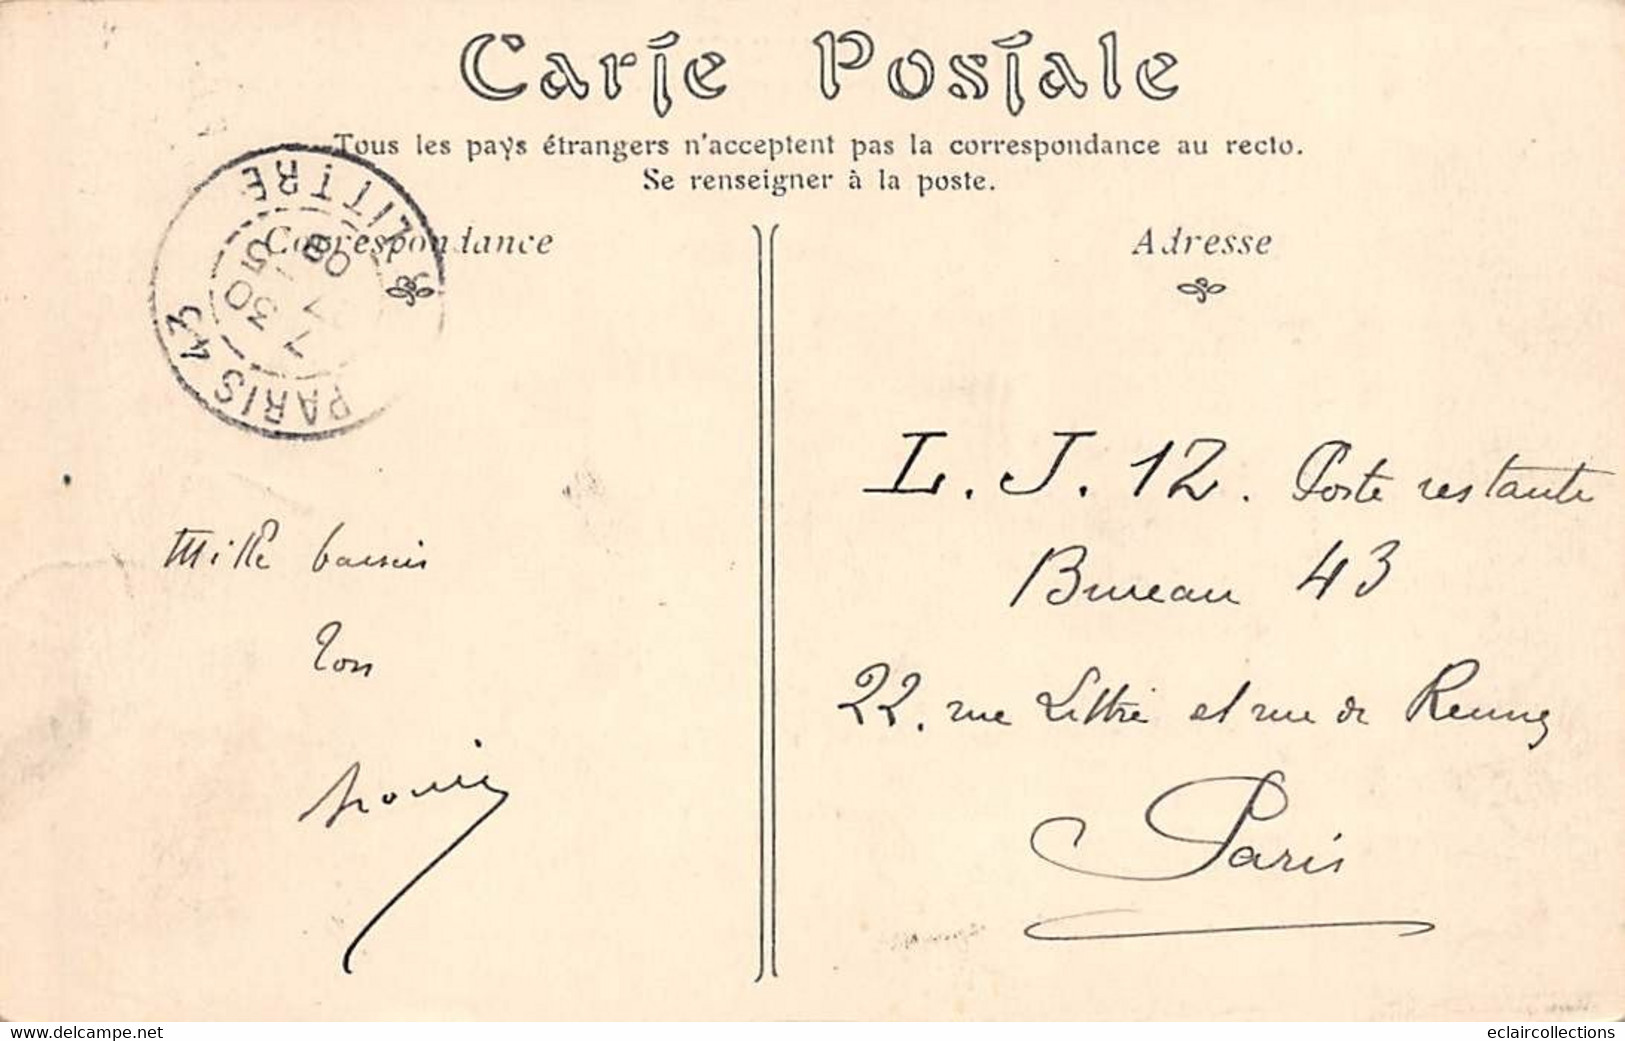 Carte Postale
Tous les pays étrangers n'acceptent pas la correspondance au recto.
Se renseigner à la poste.
Correspondance
Adresse
PARIS 43
R. LITTRE
7 30
5
08
L. J. 12. Poste restante
Bureau 43
22. rue Littré et rue de Rennes
Paris
Mille baisers
Ton
www.delcampe.net
eclaircollections